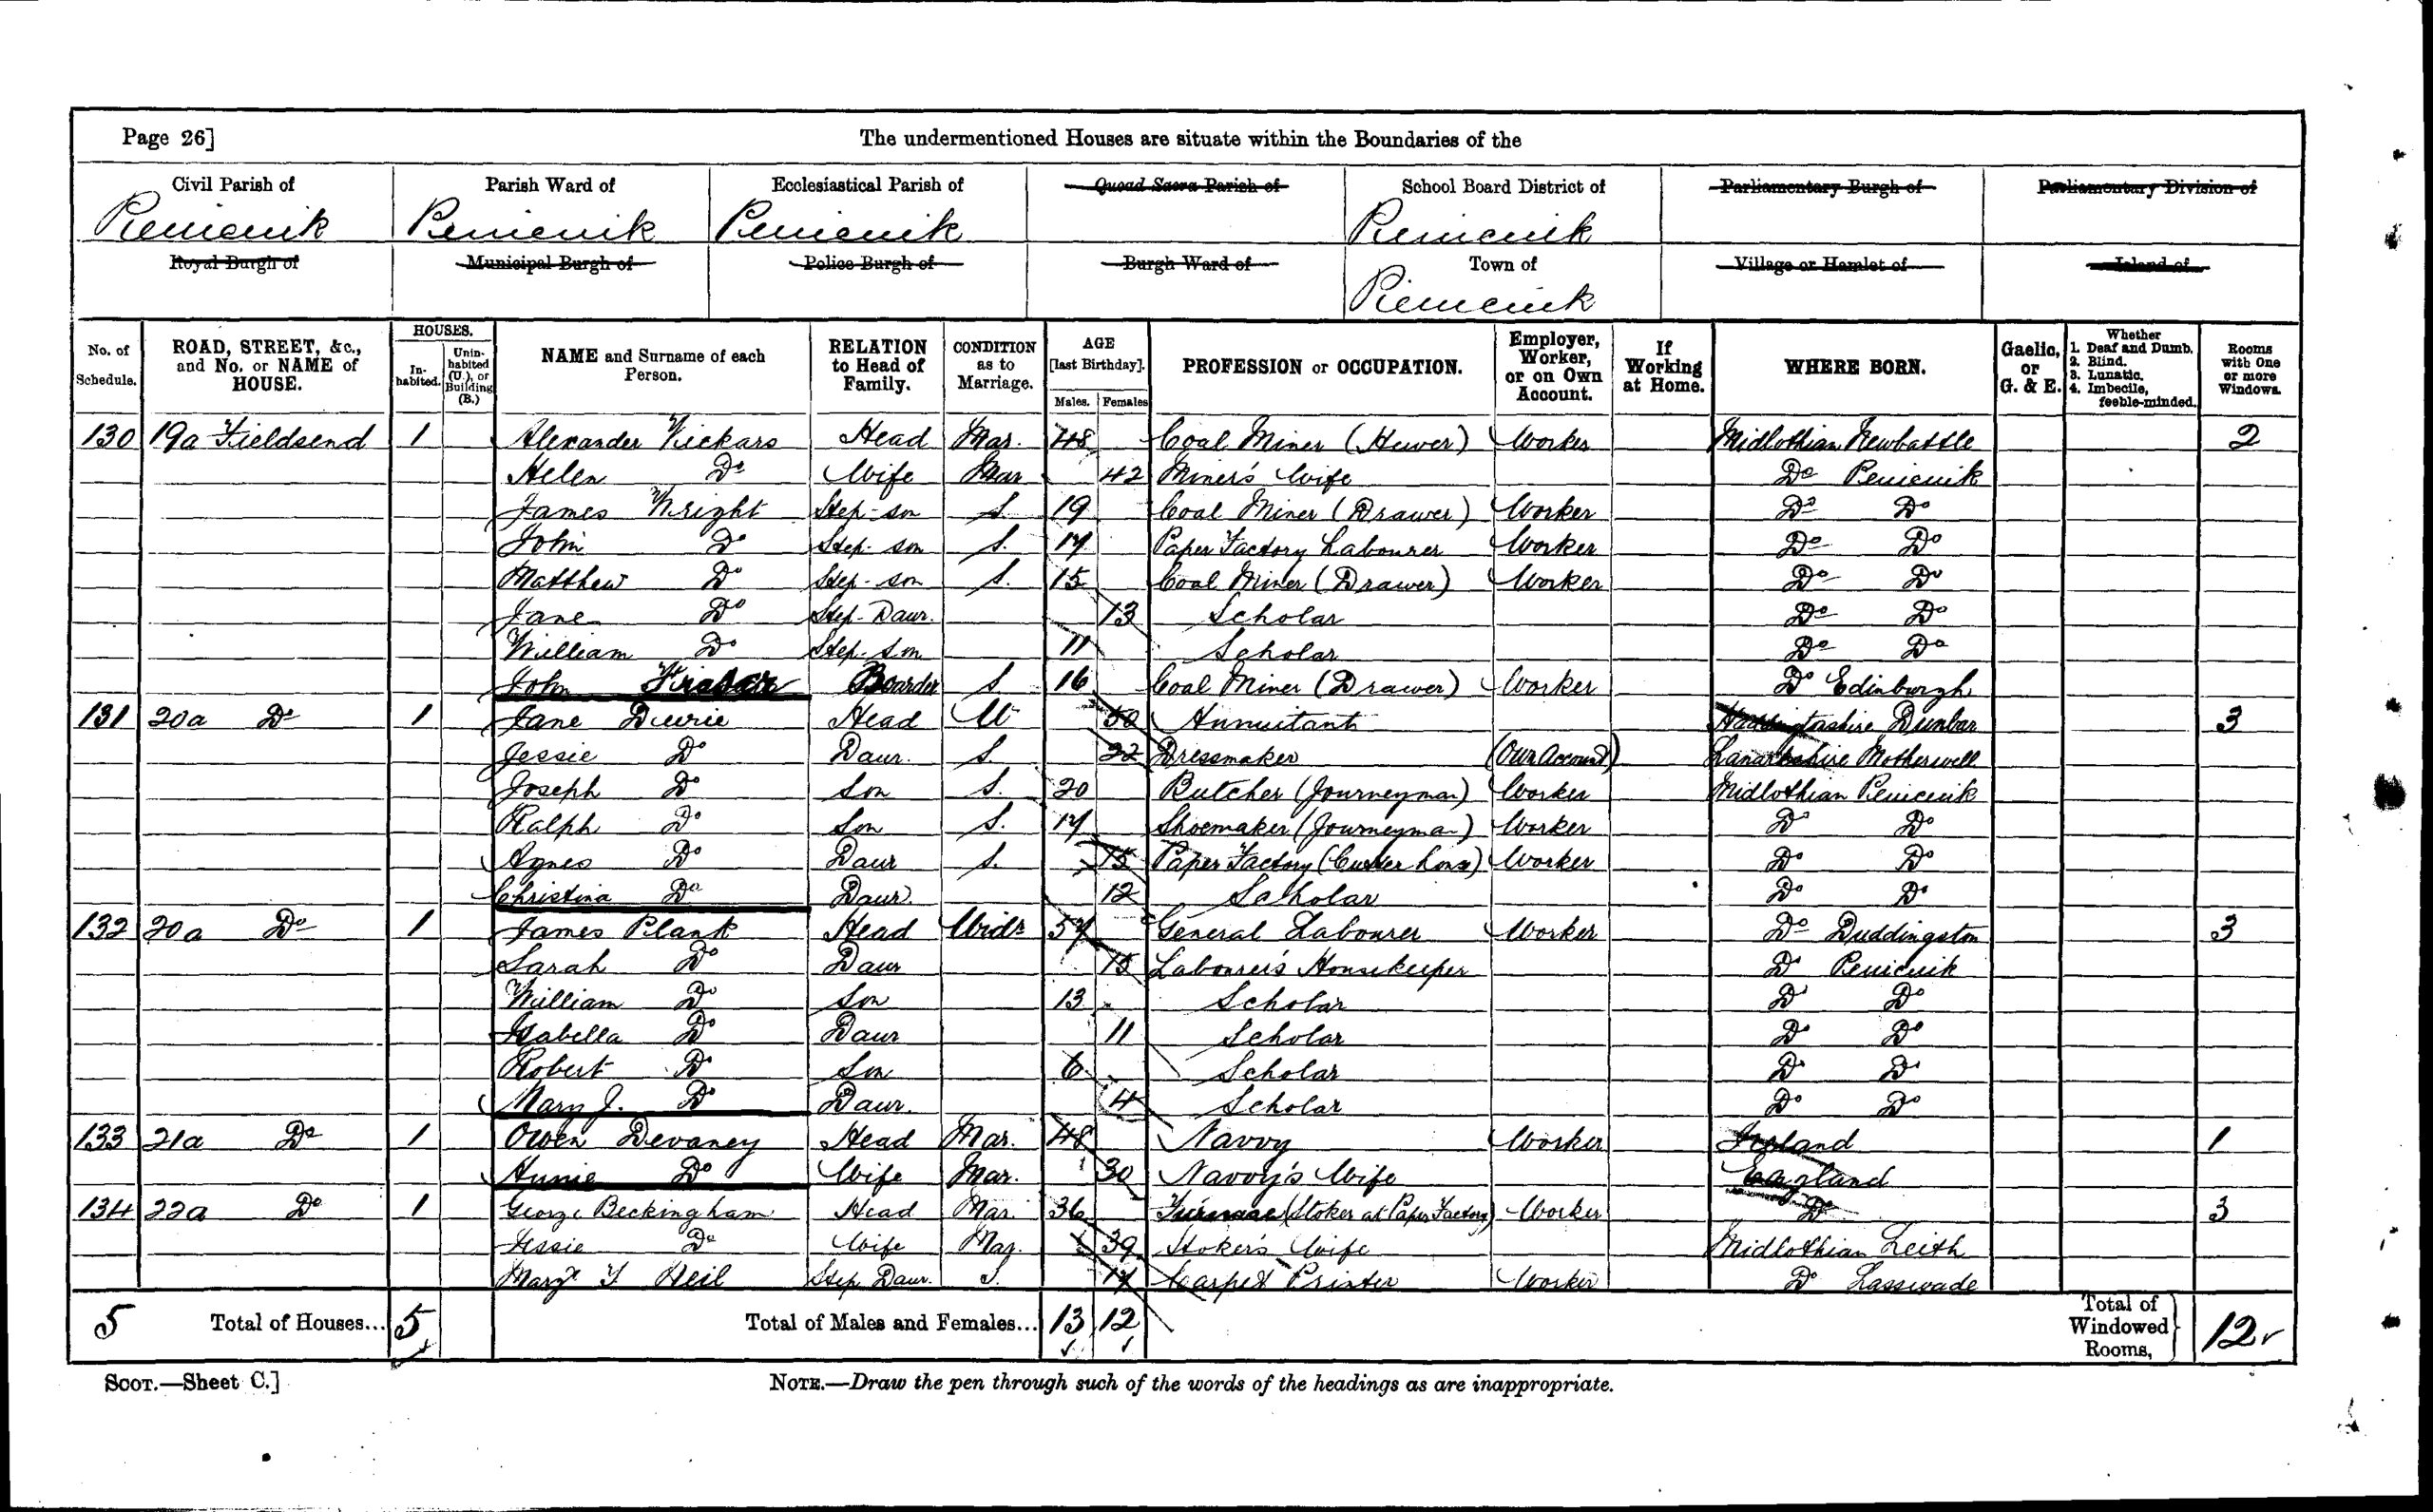 Page 26] The undermentioned Houses are situate within the Boundaries of the
Civil Parish of Parish Ward of Ecclesiastical Parish of Quoad Sacra Parish of School Board District of Parliamentary Burgh of Parliamentary Division of
Penicuik Penicuik Penicuik Penicuik
Royal Burgh of Municipal Burgh of Police Burgh of Burgh Ward of Town of Village or Hamlet of Island of
Penicuik
No. of Schedule. ROAD, STREET, &c., and No. or NAME of HOUSE. HOUSES. Inhabited. Uninhabited (U.), or Building (B.) NAME and Surname of each Person. RELATION to Head of Family. CONDITION as to Marriage. AGE [last Birthday]. Males. Females PROFESSION or OCCUPATION. Employer, Worker, or on Own Account. If Working at Home. WHERE BORN. Gaelic, or G. & E. Whether 1. Deaf and Dumb. 2. Blind. 3. Lunatic. 4. Imbecile, feeble-minded. Rooms with One or more Windows.
130 19a Fieldsend 1 Alexander Vickars Head Mar. 48 Coal Miner (Hewer) Worker Midlothian Newbattle 2
Helen Do Wife Mar 42 Miner's Wife Do Penicuik
James Wright Step-son S. 19 Coal Miner (Drawer) Worker Do Do
John Do Step-son S. 17 Paper Factory Labourer Worker Do Do
Matthew Do Step-son S. 15 Coal Miner (Drawer) Worker Do Do
Jane Do Step-Daur. 13 Scholar Do Do
William Do Step-son 11 Scholar Do Do
John Fraser Boarder S. 16 Coal Miner (Drawer) Worker Do Edinburgh
131 20a Do 1 Jane Durie Head W 50 Annuitant Haddingtonshire Dunbar 3
Jessie Do Daur. S. 22 Dressmaker (Own Account) Lanarkshire Motherwell
Joseph Do Son S. 20 Butcher (Journeyman) Worker Midlothian Penicuik
Ralph Do Son S. 17 Shoemaker (Journeyman) Worker Do Do
Agnes Do Daur S. 15 Paper Factory (Cutter house) Worker Do Do
Christina Do Daur. 12 Scholar Do Do
132 20a Do 1 James Plank Head Widr 57 General Labourer Worker Do Duddingston 3
Sarah Do Daur 15 Labourer's Housekeeper Do Penicuik
William Do Son 13 Scholar Do Do
Isabella Do Daur 11 Scholar Do Do
Robert Do Son 6 Scholar Do Do
Mary J. Do Daur. 4 Scholar Do Do
133 21a Do 1 Owen Devaney Head Mar. 48 Navvy Worker Ireland 1
Annie Do Wife Mar. 30 Navvy's Wife England
134 22a Do 1 George Beckingham Head Mar. 36 Furnace (Stoker at Paper Factory) Worker Do 3
Jessie Do Wife Mar. 39 Stoker's Wife Midlothian Leith
Margt Y. Neil Step Daur. S. 17 Carpet Printer Worker Do Lasswade
5 Total of Houses... 5 Total of Males and Females... 13 12 Total of Windowed Rooms, 12
SCOT.—Sheet C.] NOTE.—Draw the pen through such of the words of the headings as are inappropriate.